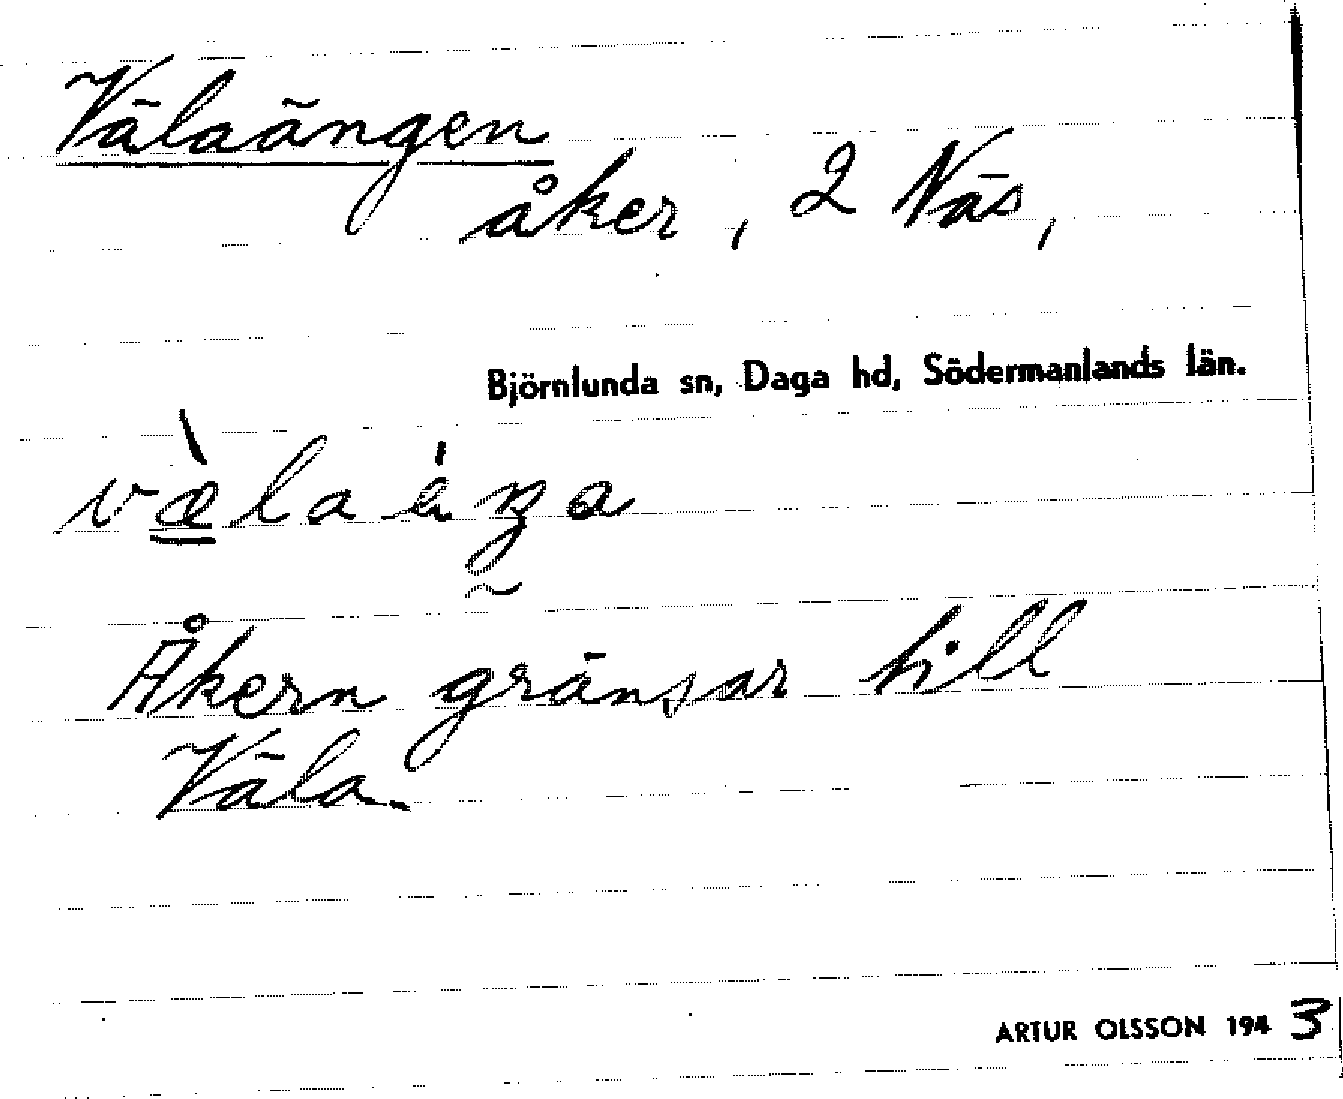 Välaängen
åker, 2 Näs,
Björnlunda sn, Daga hd, Södermanlands län.
Åkern gränsar till
Väla
ARTUR OLSSON 1943